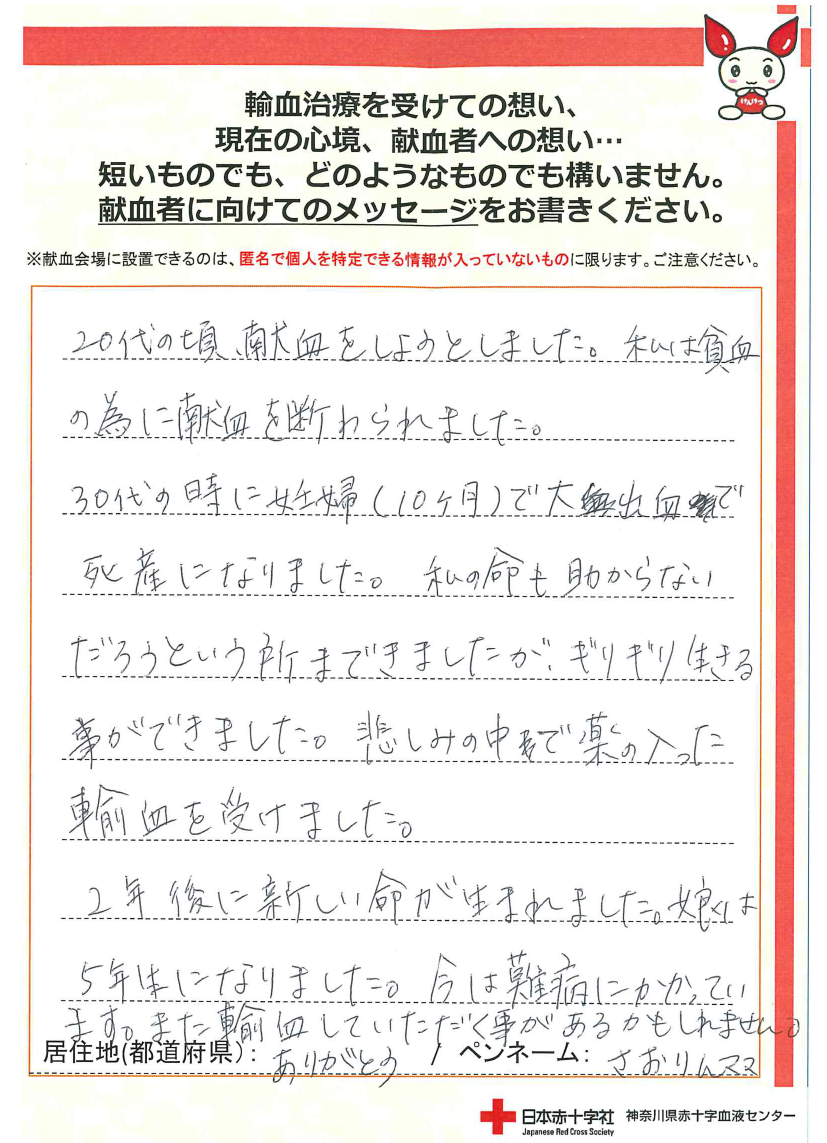 けんけつ
輸血治療を受けての想い、
現在の心境、献血者への想い…
短いものでも、どのようなものでも構いません。
献血者に向けてのメッセージをお書きください。
※献血会場に設置できるのは、匿名で個人を特定できる情報が入っていないものに限ります。ご注意ください。
20代の頃、献血をしようとしました。私は貧血
の為に献血を断わられました。
30代の時に妊婦(10ヶ月)で大出血で
死産になりました。私の命も助からない
だろうという所まできましたが、ギリギリ生きる
事ができました。悲しみの中で薬の入った
輸血を受けました。
2年後に新しい命が生まれました。娘は
5年生になりました。今は難病にかかってい
ます。また輸血していただく事があるかもしれません。
ありがとう
居住地(都道府県): / ペンネーム: さおりんママ
日本赤十字社 神奈川県赤十字血液センター
Japanese Red Cross Society